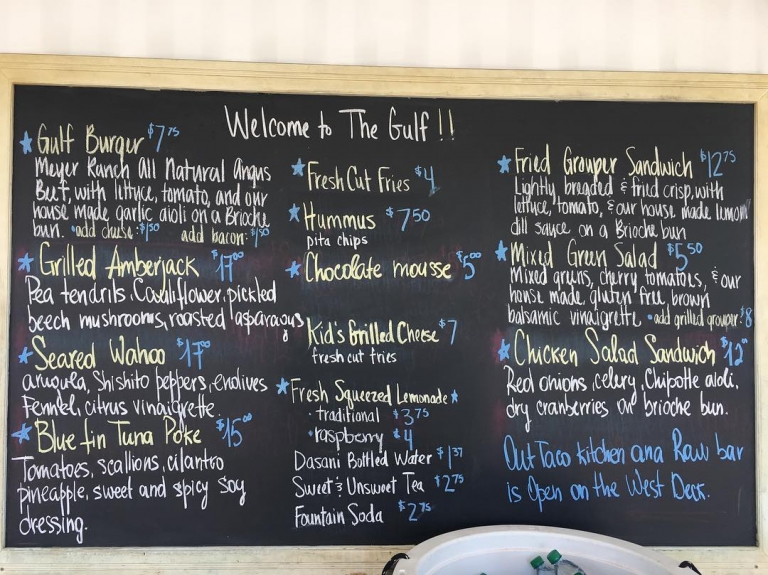 Welcome to The Gulf!!
Gulf Burger $7.75
Meyer Ranch All Natural Angus
Beef, with lettuce, tomato, and our
house made garlic aioli on a Brioche
bun. •add cheese: $1.50 add bacon: $1.50
Grilled Amberjack $17.00
Pea tendrils, Cauliflower, pickled
beech mushrooms, roasted asparagus
Seared Wahoo $17.00
arugula, Shishito peppers, endives
Fennel, citrus vinaigrette.
Blue fin Tuna Poke $15.00
Tomatoes, scallions, cilantro
pineapple, sweet and spicy soy
dressing.
Fresh Cut Fries $4
Hummus $7.50
pita chips
Chocolate mousse $5.00
Kid's Grilled Cheese $7
fresh cut fries
Fresh Squeezed Lemonade
• traditional $3.75
• raspberry $4
Dasani Bottled Water $1.37
Sweet & Unsweet Tea $2.75
Fountain Soda $2.75
Fried Grouper Sandwich $12.75
Lightly breaded & fried crisp, with
lettuce, tomato, & our house made lemon
dill sauce on a Brioche bun
Mixed Green Salad $5.50
Mixed greens, cherry tomatoes, & our
house made, gluten free, brown
balsamic vinaigrette •add grilled grouper: $8
Chicken Salad Sandwich $12.00
Red onions, celery, Chipotle aioli,
dry cranberries on brioche bun.
Our Taco kitchen and Raw bar
is Open on the West Deck.